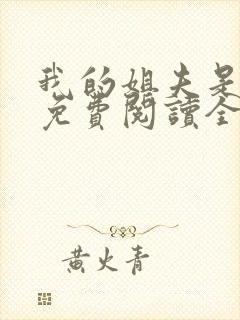 我的姐夫是
免費閱讀全
黄火青